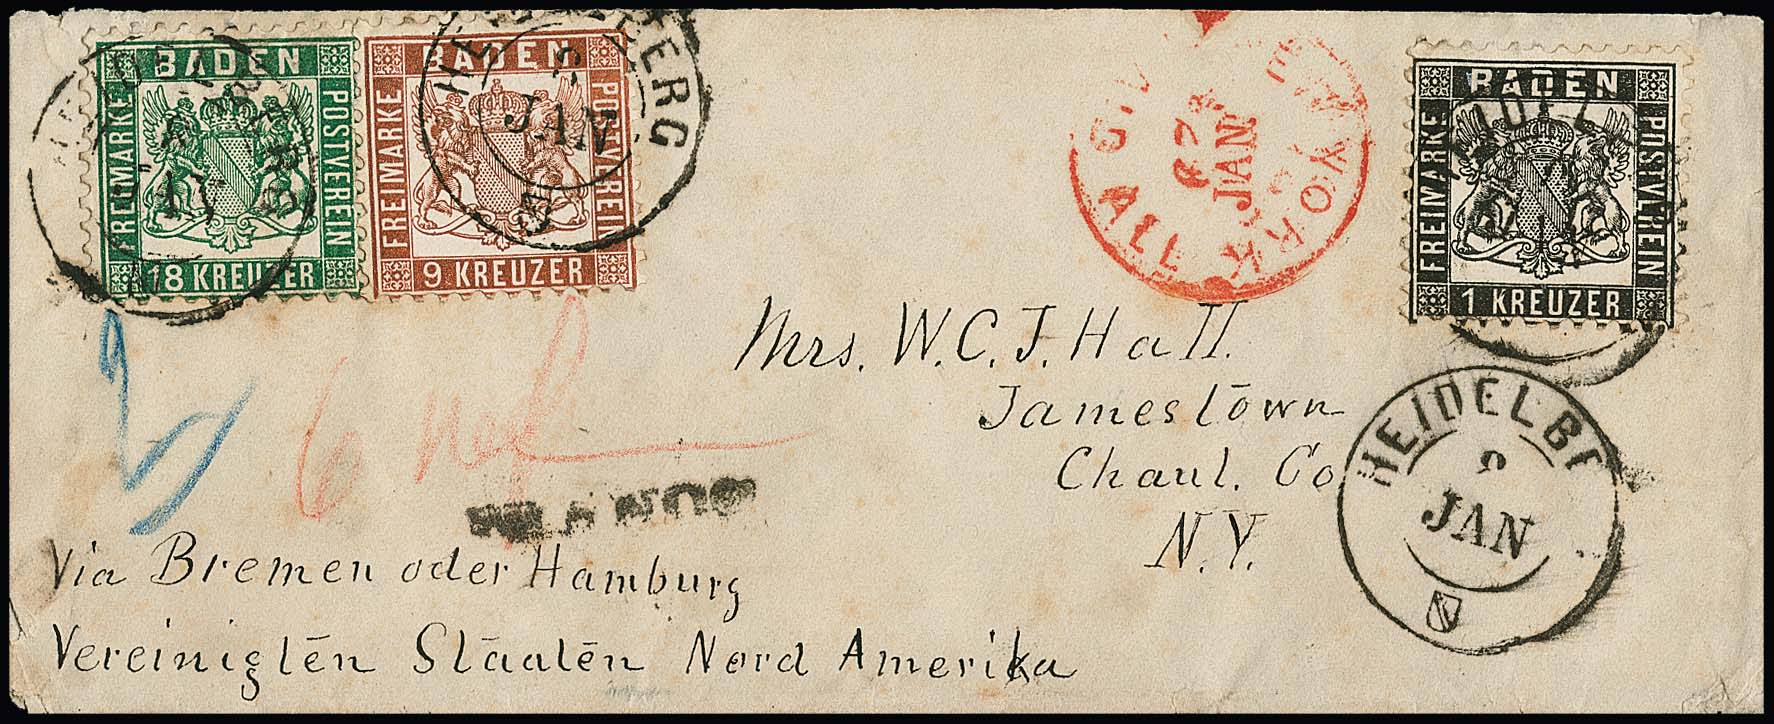 BADEN
FREIMARKE
POSTVEREIN
18 KREUZER
BADEN
FREIMARKE
POSTVEREIN
9 KREUZER
JAN
NEW YORK
JAN
ALL
BADEN
FREIMARKE
POSTVEREIN
1 KREUZER
Mrs. W. C. J. Hall.
Jamestown
Chaut. Co
N.Y.
HEIDELBE
JAN
2
6
Via Bremen oder Hamburg
Vereinigten Staaten Nord Amerika